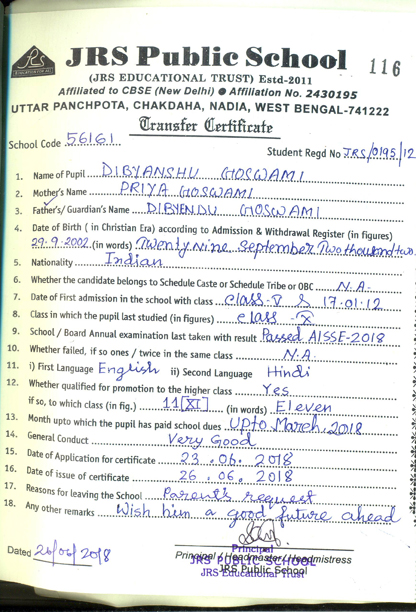 JRS Public School
116
(JRS EDUCATIONAL TRUST) Estd-2011
Affiliated to CBSE (New Delhi) ● Affiliation No. 2430195
UTTAR PANCHPOTA, CHAKDAHA, NADIA, WEST BENGAL-741222
Transfer Certificate
School Code 56161
Student Regd No JRS/0195/12
1. Name of Pupil DIBYANSHU GOSWAMI
2. Mother's Name PRIYA GOSWAMI
3. Father's/ Guardian's Name DIBYENDU GOSWAMI
4. Date of Birth ( in Christian Era) according to Admission & Withdrawal Register (in figures)
29.9.2002 (in words) Twenty Nine September Two thousand two
5. Nationality Indian
6. Whether the candidate belongs to Schedule Caste or Schedule Tribe or OBC N.A.
7. Date of First admission in the school with class Class-V & 17.01.12
8. Class in which the pupil last studied (in figures) Class -X
9. School / Board Annual examination last taken with result Passed AISSE-2018
10. Whether failed, if so ones / twice in the same class N.A.
11. i) First Language English ii) Second Language Hindi
12. Whether qualified for promotion to the higher class Yes
if so, to which class (in fig.) 11[XI] (in words) Eleven
13. Month upto which the pupil has paid school dues Upto March, 2018
14. General Conduct Very Good
15. Date of Application for certificate 23.06.2018
16. Date of issue of certificate 26.06.2018
17. Reasons for leaving the School Parent's request
18. Any other remarks Wish him a good future ahead
Dated 26/06/2018
Principal
Principal / Headmaster / Headmistress
JRS PUBLIC SCHOOL
JRS Public School
JRS Educational Trust